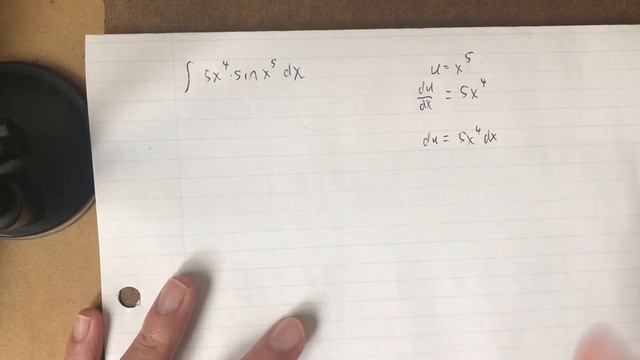 ∫ 5x⁴·sin x⁵ dx
u = x⁵
du/dx = 5x⁴
du = 5x⁴ dx